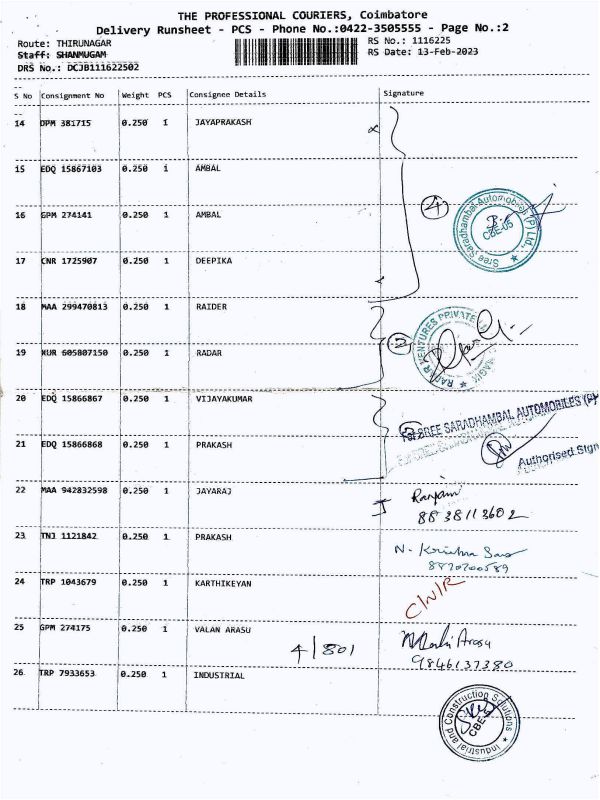 THE PROFESSIONAL COURIERS, Coimbatore
Delivery Runsheet - PCS - Phone No.:0422-3505555 - Page No.:2
Route: THIRUNAGAR
RS No.: 1116225
Staff: SHANMUGAM
RS Date: 13-Feb-2023
DRS No.: DCJB111622502
S No Consignment No Weight PCS Consignee Details Signature
14 DPM 381715 0.250 1 JAYAPRAKASH
15 EDQ 15867103 0.250 1 AMBAL
16 GPM 274141 0.250 1 AMBAL
4
Sree Saradhambal Automobiles (P) Ltd.,
CBE-05
17 CNR 1725907 0.250 1 DEEPIKA
18 MAA 299470813 0.250 1 RAIDER
19 KUR 605807150 0.250 1 RADAR
2
VENTURES PRIVATE
20 EDQ 15866867 0.250 1 VIJAYAKUMAR
For SREE SARADHAMBAL AUTOMOBILES (P)
21 EDQ 15866868 0.250 1 PRAKASH
Authorised Sign
22 MAA 942832598 0.250 1 JAYARAJ
Ranjani
8838113602
23 TNJ 1121842 0.250 1 PRAKASH
N. Krishna
8870700589
24 TRP 1043679 0.250 1 KARTHIKEYAN
C/N/R
25 GPM 274175 0.250 1 VALAN ARASU
4/801
Arasu
9846137380
26 TRP 7933653 0.250 1 INDUSTRIAL
Industrial and Construction Solutions
CBE